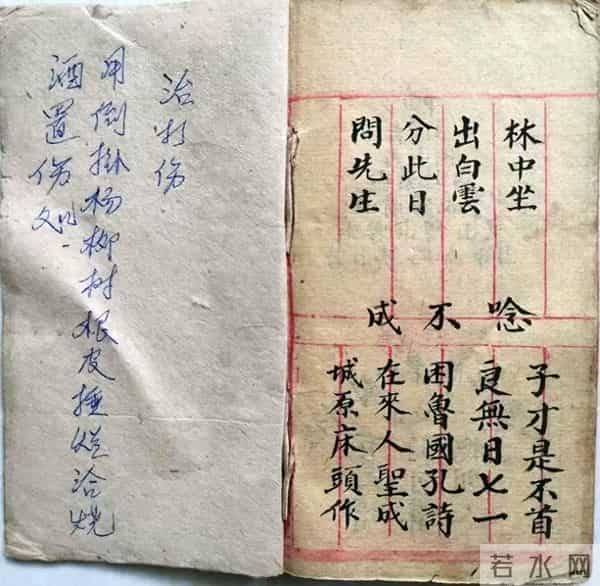 林中坐
出白雲
分此日
問先生
唸不成
子才是不首
良無日七一
困魯國孔詩
在來人聖成
城原床頭作
治打伤
用倒掛杨柳树根皮捶烂洽烧
酒置伤处
若水网